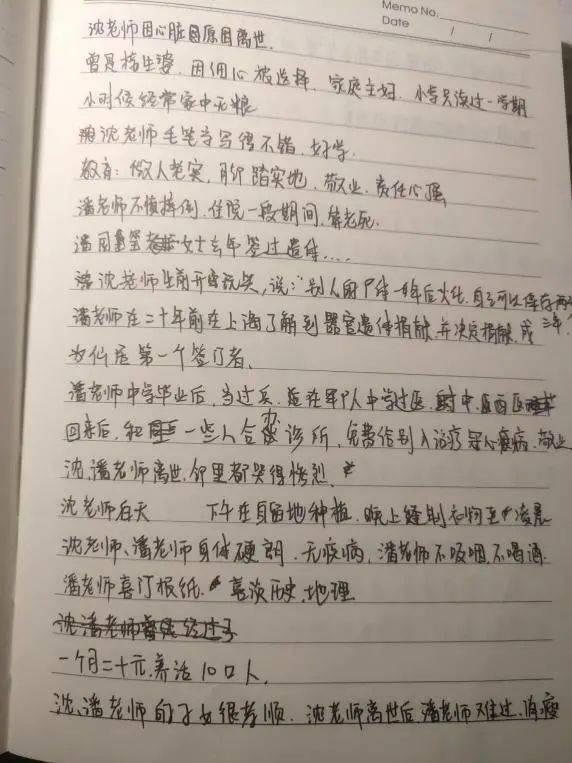 Memo No.
Date / /
沈老师因心脏原因离世.
曾是接生婆. 因细心被选择. 家庭主妇. 小学只读过一学期
小时候经常家中无粮
沈老师毛笔字写得不错. 好学.
教育: 做人老实, 脚踏实地. 敬业. 责任心强
潘老师不慎摔倒. 住院一段期间. 衰老死.
潘 女士去年签过遗体....
沈老师生前开玩笑, 说: "别人的尸体一年后火化, 自己可以停
潘老师在二十年前在上海了解到器官遗体捐献, 并决定捐献, 成
为仙居第一个签订者.
潘老师中学毕业后, 当过兵. 在军人中学过医. 中. 西医
回来后, 和 一些人合办诊所, 免费给别人治疗 心疾病. 敬业
沈. 潘老师离世. 邻里都哭得惨烈.
沈老师白天 下午在自留地种植. 晚上缝制衣物至凌晨
沈老师、潘老师身体硬朗. 无疾病, 潘老师不吸烟. 不喝酒.
潘老师喜订报纸. 喜谈历史. 地理
一个月二十元. 养活10口人.
沈、潘老师的子女很孝顺. 沈老师离世后, 潘老师难过. 消瘦